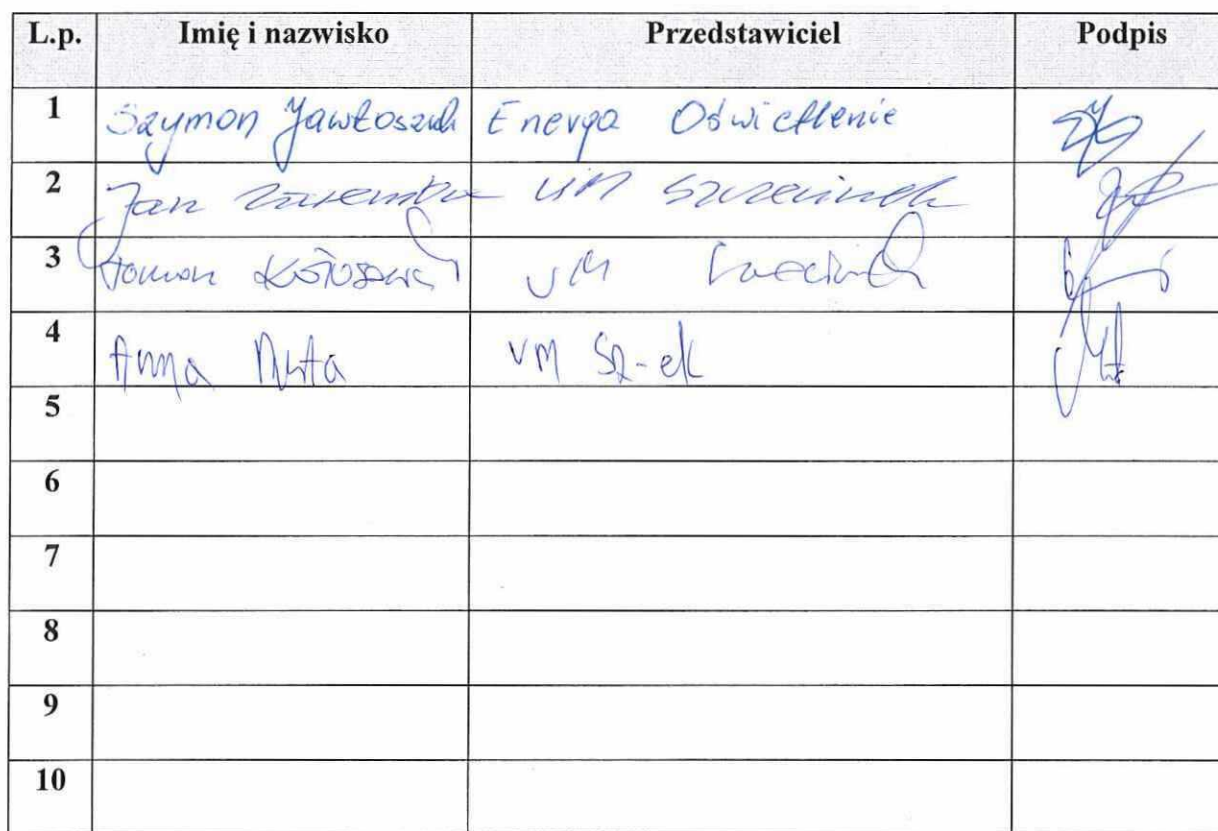 L.p. Imię i nazwisko Przedstawiciel Podpis
1 Szymon Jawłoszuk Energa Oświetlenie
2 Jan Zaremba UM Szczecinek
3 UM Szczecinek
4 Anna UM Sz-ek
5
6
7
8
9
10